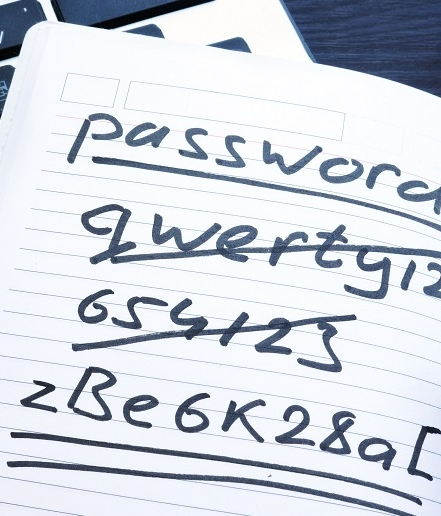 password
qwerty12
654123
zBe6K28a[